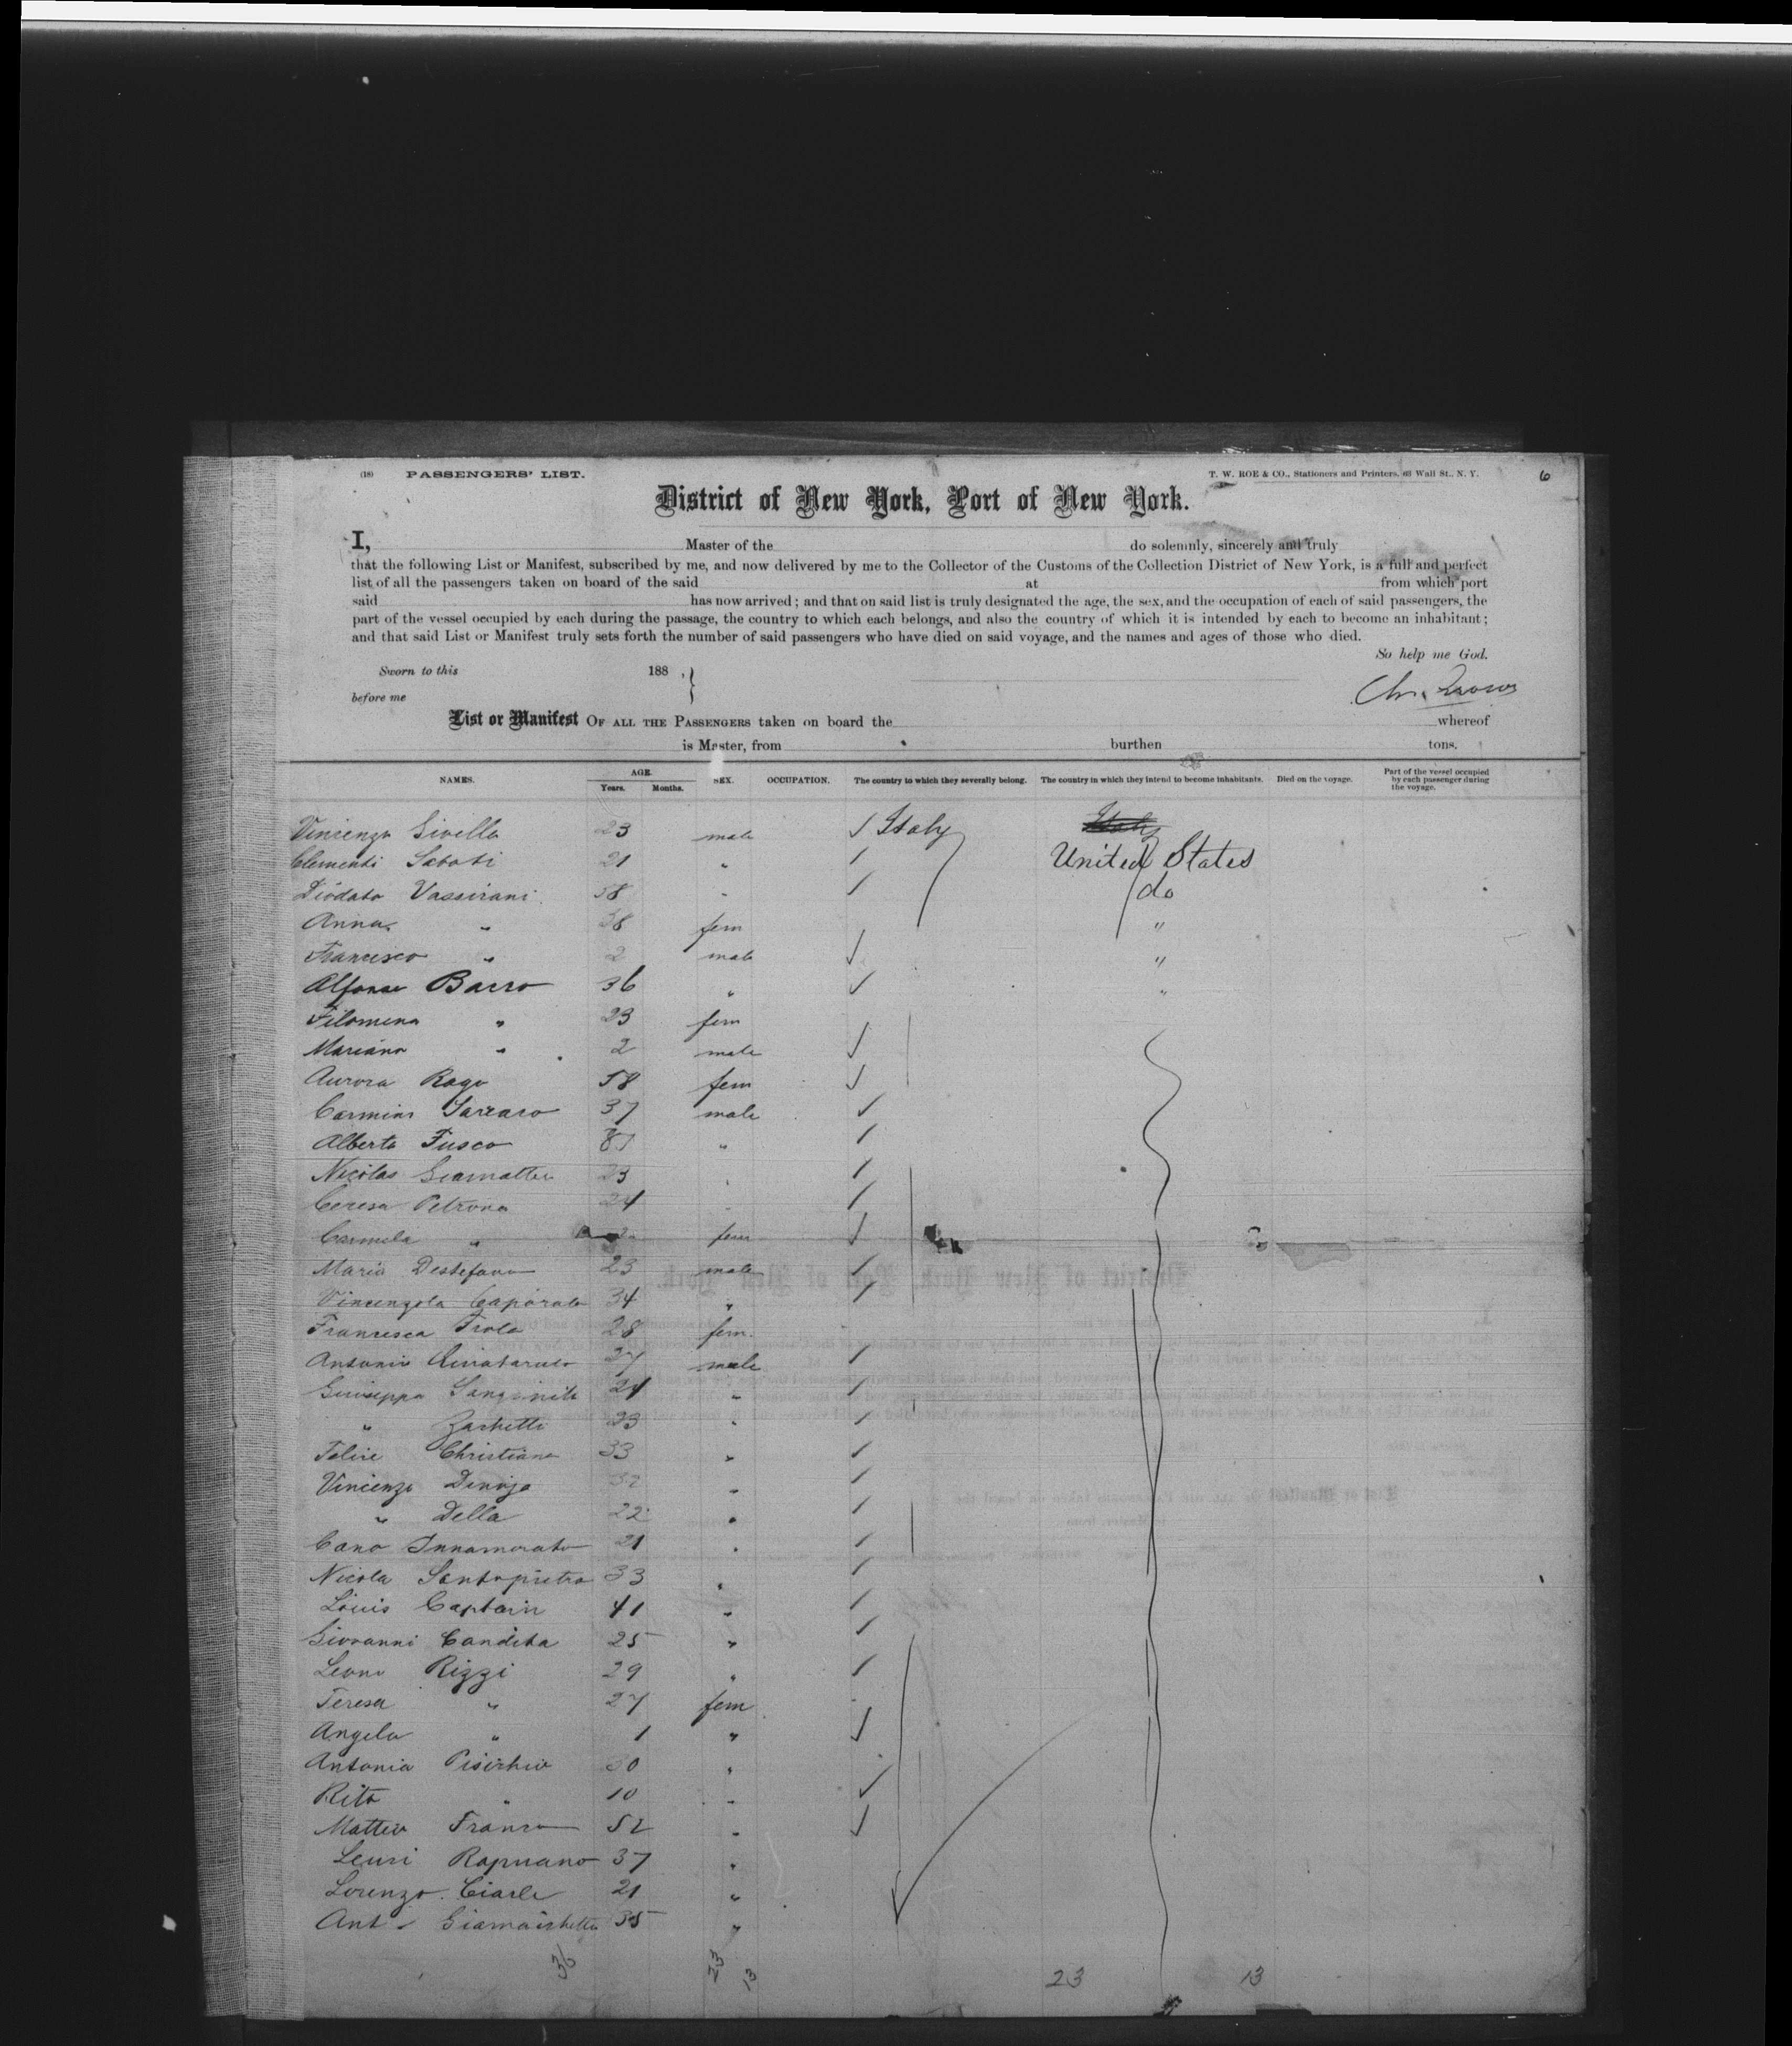 (18) PASSENGERS' LIST. T. W. ROE & CO., Stationers and Printers, 63 Wall St., N. Y. 6
District of New York, Port of New York.
I, Master of the do solemnly, sincerely and truly
that the following List or Manifest, subscribed by me, and now delivered by me to the Collector of the Customs of the Collection District of New York, is a full and perfect
list of all the passengers taken on board of the said at from which port
said has now arrived; and that on said list is truly designated the age, the sex, and the occupation of each of said passengers, the
part of the vessel occupied by each during the passage, the country to which each belongs, and also the country of which it is intended by each to become an inhabitant;
and that said List or Manifest truly sets forth the number of said passengers who have died on said voyage, and the names and ages of those who died.
So help me God.
Sworn to this 188 , }
before me
List or Manifest OF ALL THE PASSENGERS taken on board the whereof
is Master, from burthen tons.
NAMES. AGE. Years. Months. SEX. OCCUPATION. The country to which they severally belong. The country in which they intend to become inhabitants. Died on the voyage. Part of the vessel occupied by each passenger during the voyage.
Vincenzo 23 male Italy Italy
Clementi Saboti 21 " United States
Diodato Vassirani 58 " do
Anna " 38 fem "
Francesco " 2 male "
Alfonse Barro 36 " "
Filomena " 23 fem
Mariano " 2 male
Aurora Rago 58 fem
Carmine 37 male
Alberto Fusco "
Nicolas Giamatteo 23 "
Ceresa Petrona 24 "
Carmela " fem
Maria Destefano 23 male
Vincenzola Caporale 34 "
Francesca Frola 28 fem.
Antonio 27 male
Giuseppa 24 "
" Zachetti 23 "
Felice Christiano 33 "
Vincenzo 32 "
" Della 22 "
Cano Innamorato 21 "
Nicola Santopietro 33 "
Louis Captain 41 "
Giovanni Candita 25 "
Leono Rizzi 29 "
Teresa " 27 fem
Angela " 1 "
Antonia 30 "
Rita " 10 "
Matteo Franco 52 "
Leuri Rapuano 37 "
Lorenzo Ciarle 21 "
Ant 35 "
36 23 13 23 13